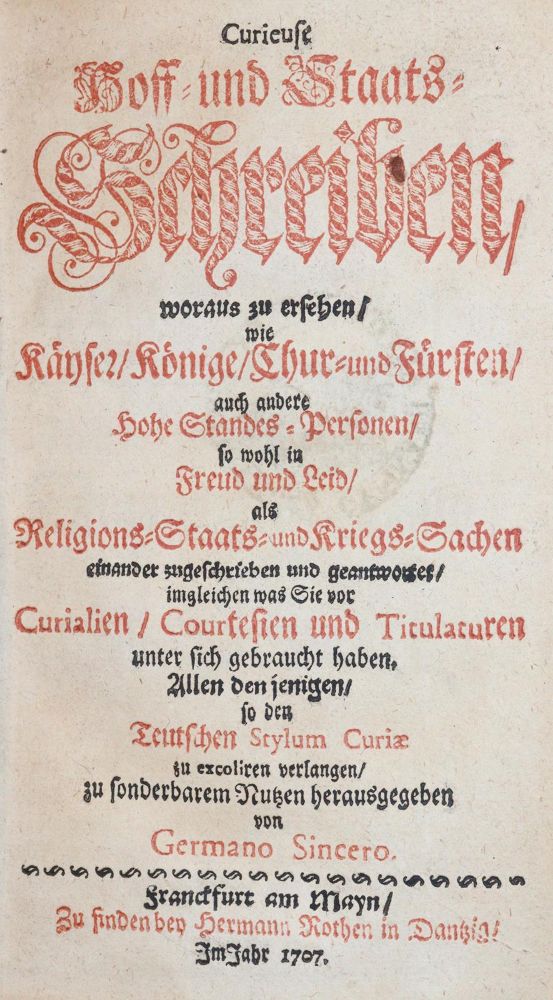 Curieuse
Hoff- und Staats-
Schreiben/
woraus zu ersehen/
wie
Käyser/ Könige/ Chur- und Fürsten/
auch andere
Hohe Standes-Personen/
so wohl in
Freud und Leid/
als
Religions-Staats- und Kriegs-Sachen
einander zugeschrieben und geantwortet/
imgleichen was Sie vor
Curialien / Courtesien und Titulaturen
unter sich gebraucht haben.
Allen den jenigen/
so den
Teutschen Stylum Curiæ
zu excoliren verlangen/
zu sonderbarem Nutzen herausgegeben
von
Germano Sincero.
Franckfurt am Mayn/
Zu finden bey Hermann Rothen in Dantzig/
Im Jahr 1707.